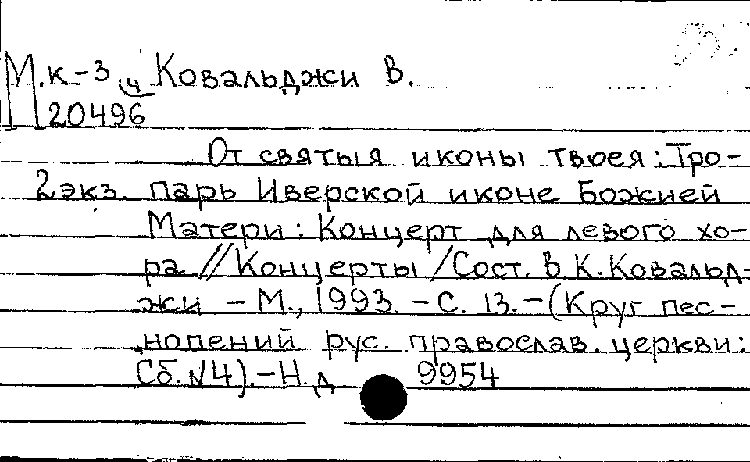 М.к-3 4 Ковальджи В.
20496
От святыя иконы твоея: Тро-
2экз. парь Иверской иконе Божией
Матери: Концерт для левого хо-
ра // Концерты / Сост. В.К. Ковальд-
жи - М., 1993. - С. 13. - (Круг пес-
нопений рус. православ. церкви:
Сб. №4). - Н.д 9954